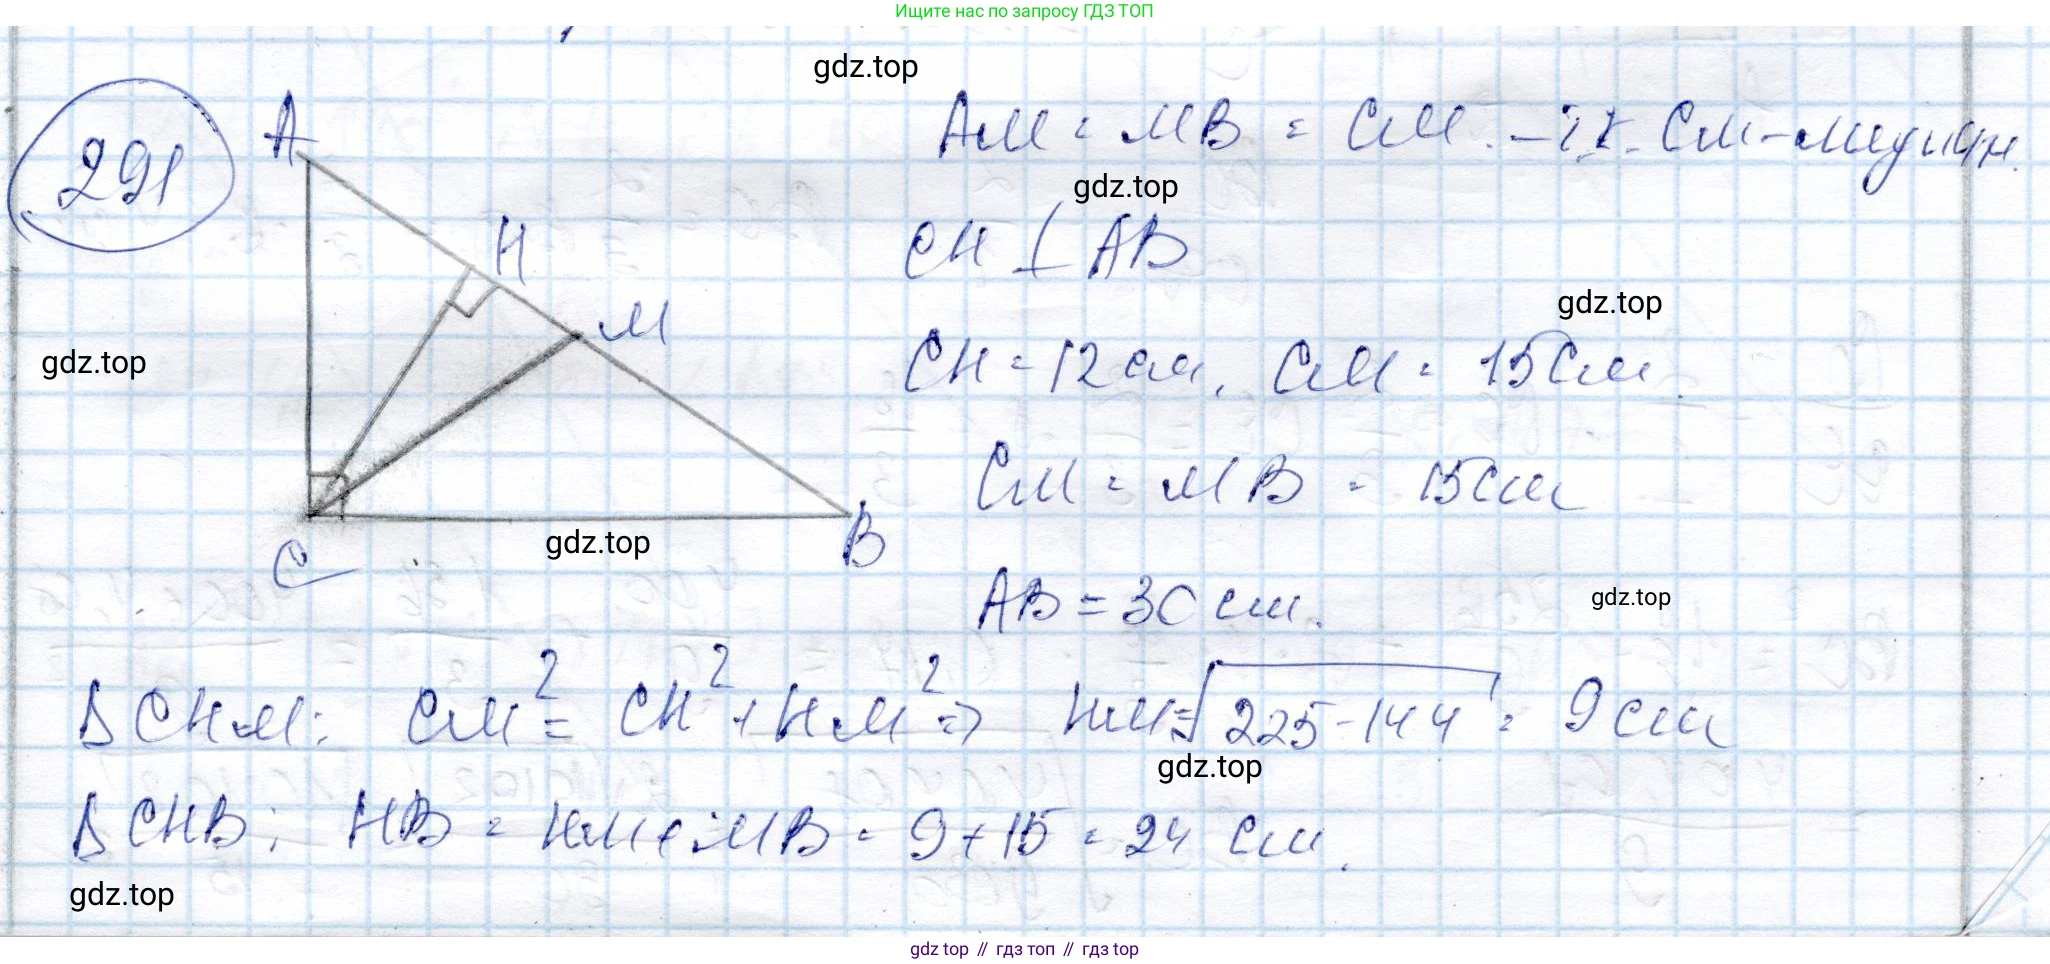 Ищите нас по запросу ГДЗ ТОП
gdz.top
291
A
AM = MB = CM. – т.к. CM – медиан.
gdz.top
H
CH ⊥ AB
gdz.top
M
gdz.top
CH = 12 см, CM = 15 см.
CM = MB = 15 см
gdz.top
C
B
AB = 30 см.
gdz.top
Δ CHM: CM² = CH² + HM² => HM = √225-144 = 9 см
gdz.top
Δ CHB: HB = HM + MB = 9 + 15 = 24 см.
gdz.top
gdz top // гдз топ // гдз top